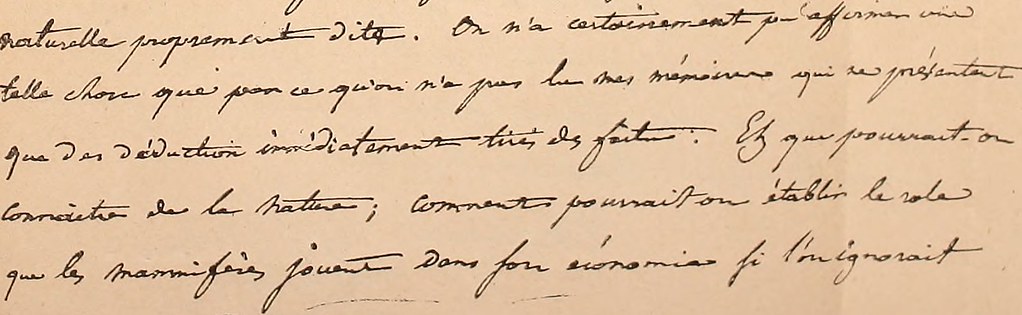 naturelle proprement dite. On n'a certainement pu affirmer une
telle chose que parce qu'on n'a pas lu mes mémoires qui ne présentent
que des déduction immédiatement tirés des faits. Eh que pourrait-on
connaitre de la nature; comment pourrait on établir le role
que les mammifères jouent dans son économie si l'on ignorait